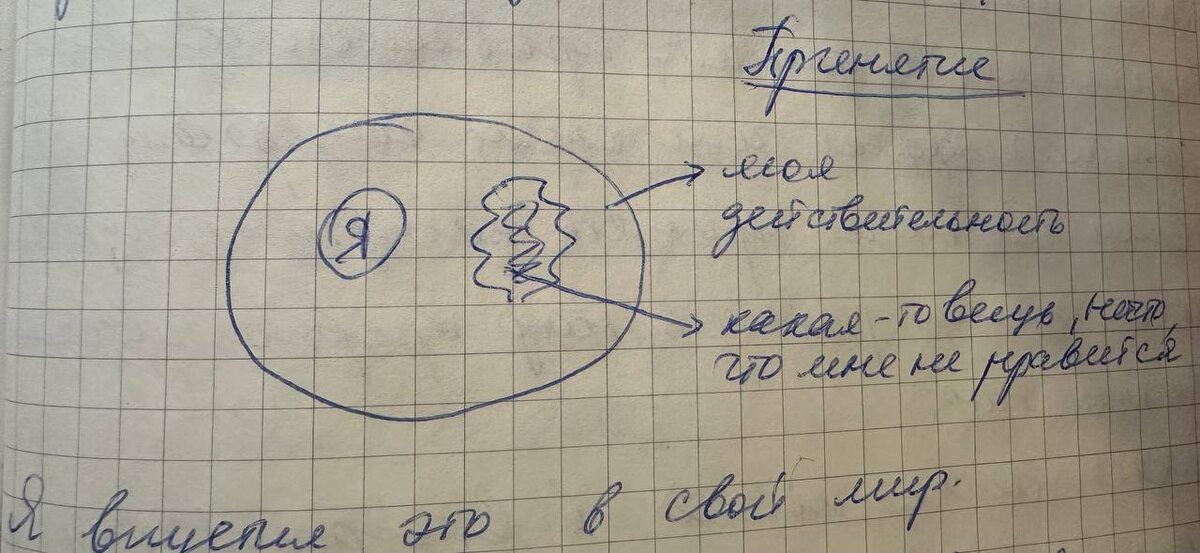 Принятие
Я
моя
действительность
какая-то вещь, нечто,
что мне не нравится
Я впустил это в свой мир.